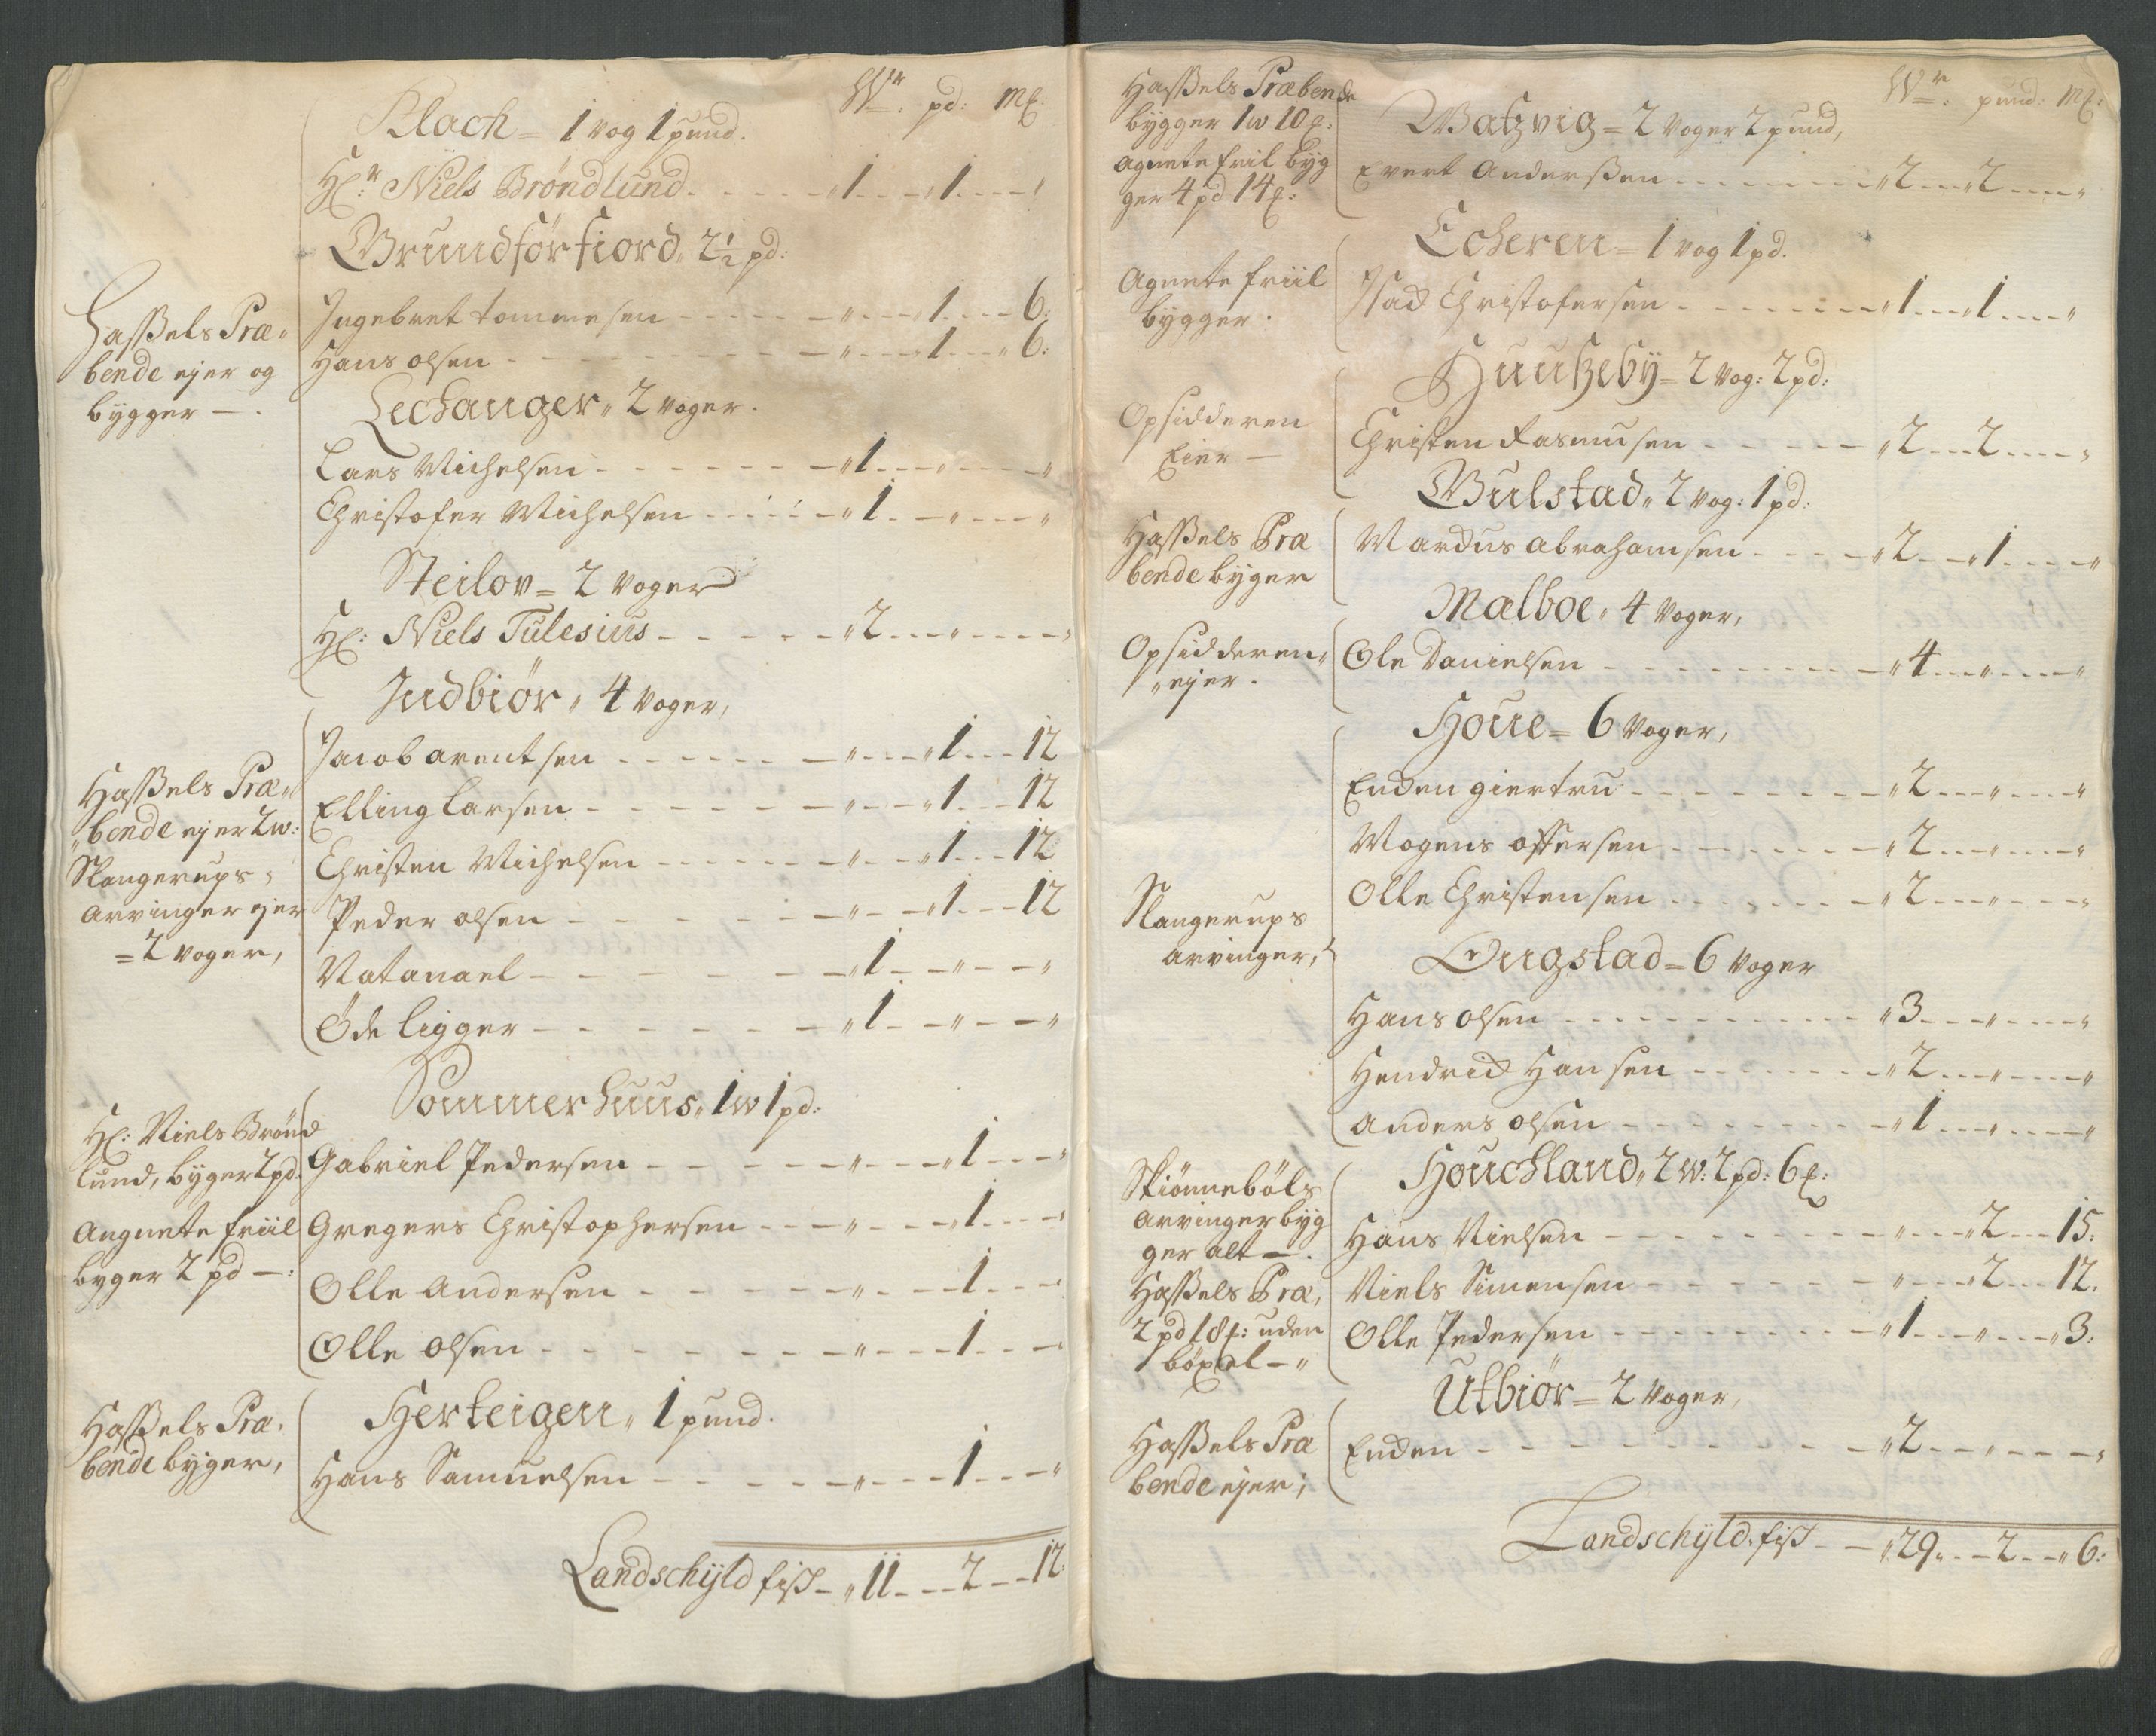 Wr. pd: Mk:
Klach = 1 vog 1 pund.
Hr: Niels Bröndlund - - - „ 1 - - „ 1 - - „
Grundförfiord, 2½ pd:
Haßels Præ„
bende ejer og
bygger — .
Ingebret Tommesen - - - „ - - „ 1 - - 6:
Hans olsen - - - „ - - „ 1 - - „ 6:
Lechanger „ 2 voger.
Lars Michelsen - - - „ 1 - - „ - - „
Christofer Michelsen - - - „ 1 - - „ - - „
Steilov = 2 voger
Hr: Niels Tulesius - - - „ 2 - - „ - - „
Indbiör „ 4 voger,
Haßels Præ„
„bende ejer 2 w:
Slangerups „
arvinger ejer
= 2 voger,
Jacob arentsen - - - „ - - „ 1 - - 12
Elling Larsen - - - „ - - „ 1 - - 12
Christen Michelsen - - - „ - - „ 1 - - 12
Peder olsen - - - „ - - „ 1 - - 12
Natanael - - - „ 1 - - „ - - „
Öde ligger - - - „ 1 - - „ - - „
Sommerhuus „ 1 w 1 pd:
Hr: Niels Brönd
lund, byger 2 pd:
Augnete friil
byger 2 pd — :
Gabriel Pedersen - - - „ - - „ 1 - - „
Gregers Christophersen - - - „ - - „ 1 - - „
Olle Andersen - - - „ - - 1 - - „
Olle olsen - - - „ - - 1 - - „
Herteigen „ 1 pund.
Haßels Præ.
bende byger,
Hans Samuelsen - - - „ - - 1 - - „
Landschyld fisk - „ 11 - - 2 - - 12:
Wr: pund: Mk:
Haßels Præbende
bygger 1 w 10 #:
Agnete friil byg
ger 4 pd 14 #:
Watzvig = 2 voger 2 pund,
Evert Anderßen - - - „ 2 - - „ 2 - - „
Echeren = 1 vog 1 pd.
Agnete friil
bygger.
Isac Christofersen - - - „ 1 - - „ 1 - - „
Huutzeby = 2 vog: 2 pd:
Opsidderen
Eier —
Christen Rasmusen - - - „ 2 - - 2 - - „
Gulstad „ 2 vog: 1 pd:
Haßels Præ
bende byger
Mardus abrahamsen - - - „ 2 - - „ 1 - - „
Mælboe „ 4 voger,
Opsidderen„
„ejer.
Ole Danielsen - - - „ 4 - - „ - - „
Houe = 6 voger,
Slangerups
arvinger,
Enden giertru - - - „ 2 - - „ - - „
Mogens offersen - - - „ 2 - - „ - - „
Olle Christensen - - - „ 2 - - „ - - „
Qugstad = 6 voger
Hans olsen - - - „ 3 - - „ - - „
Hendrich Hansen - - - „ 2 - - „ - - „
anders olsen - - - „ 1 - - „ - - „
Houchland „ 2 w: 2 pd: 6 #:
Skiönnebøls
arvinger byg
ger alt — .
Haßels Præ,
2 pd 18 #: uden
böxel — „
Hans Nielsen - - - „ - - „ 2 - - 15:
Niels Simensen - - - „ - - „ 2 - - 12.
Olle Pedersen - - - „ 1 - - „ - - „ 3:
Utbiör = 2 voger,
Haßels Præ
bende ejer;
Enden - - - „ 2 - - „ - - „
Landschyld. fisk - - „ 29 „ - - 2 - - „ 6: